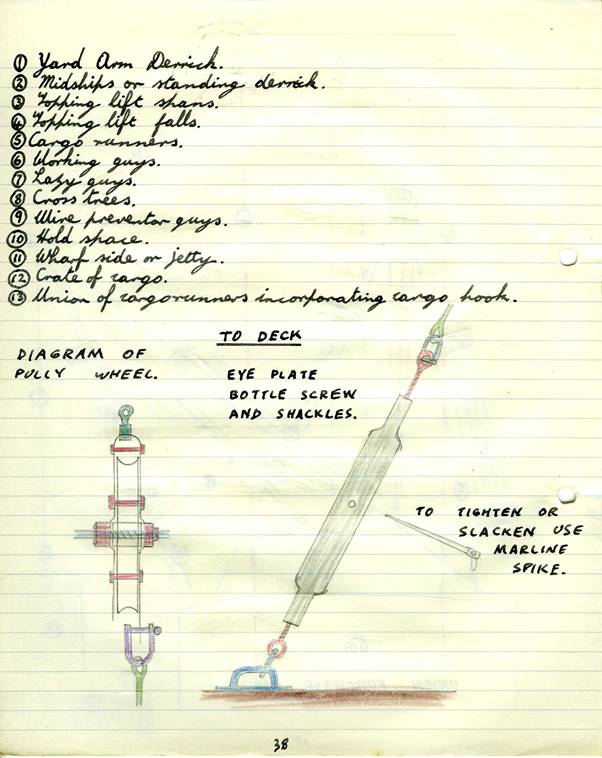 ① Yard Arm Derrick.
② Midships or standing derrick.
③ Topping lift spans.
④ Topping lift falls.
⑤ Cargo runners.
⑥ Working guys.
⑦ Lazy guys.
⑧ Cross trees.
⑨ Wire preventor guys.
⑩ Hold space.
⑪ Wharf side or jetty.
⑫ Crate of cargo.
⑬ Union of cargo runners incorporating cargo hook.
TO DECK
DIAGRAM OF
PULLY WHEEL.
EYE PLATE
BOTTLE SCREW
AND SHACKLES.
TO TIGHTEN OR
SLACKEN USE
MARLINE
SPIKE.
38